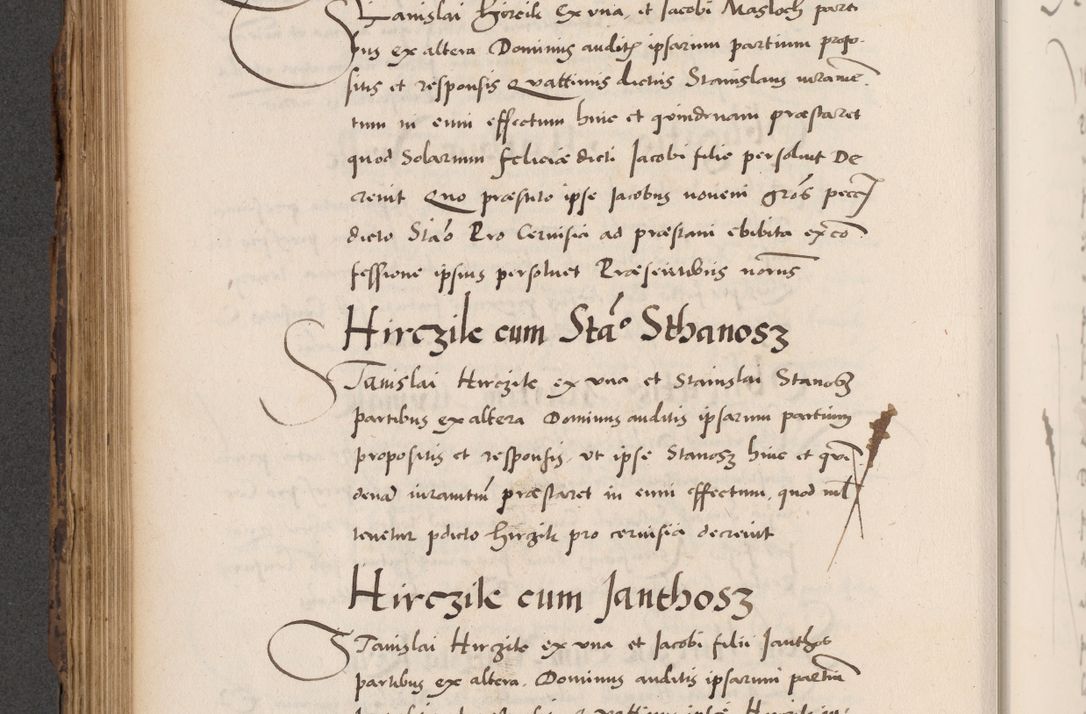 Stanislai Hirczik Ex vna, et Jacobi Masloch parti
bus ex altera Dominus auditis ipsarum partium propo-
sitis et responsis Quattinus dictus Stanislaus iuramen
tum in eum effectum hinc et quindenam præstaret
quod Solarium feliciæ dicti Jacobi filie persoluit De
creuit Quo præstito ipse Jacobus nouem gros
dicto Stão Pro Ceruisia ad præstani ebibita ex co
fessione ipsius persoluet Præsentibus
Hirczik cum Stão Sthanosz
Stanislai Hirczik ex vna et Stanislai Stanosz
partibus ex altera Dominus auditis ipsarum partium
propositis et responsis, vt ipse Stanosz hinc et qui
denã iuramtm præstaret in eum effectum, quod nil
tenetur pdicto Hirczik pro ceruisia decreuit
Hirczik cum Janthosz
Stanislai Hirczik ex vna et Jacobi filii Janthos
partibus ex altera. Dominus auditis ipsarum partiu